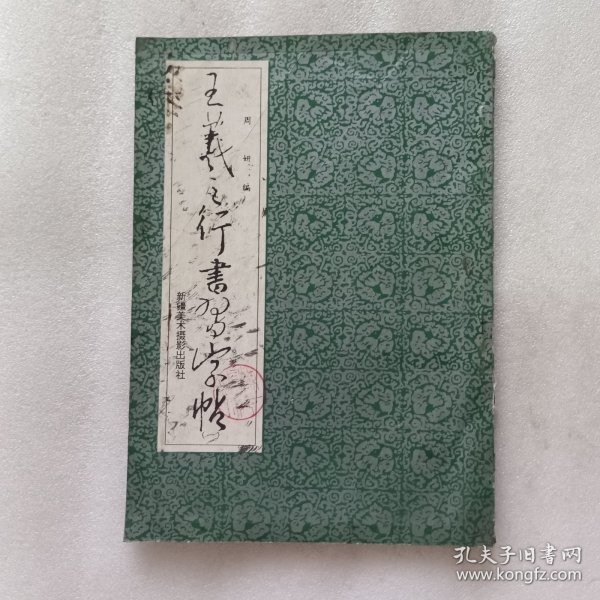 周妍 编
王羲之行书习字帖
新疆美术摄影出版社
孔夫子旧书网
www.kongfz.com